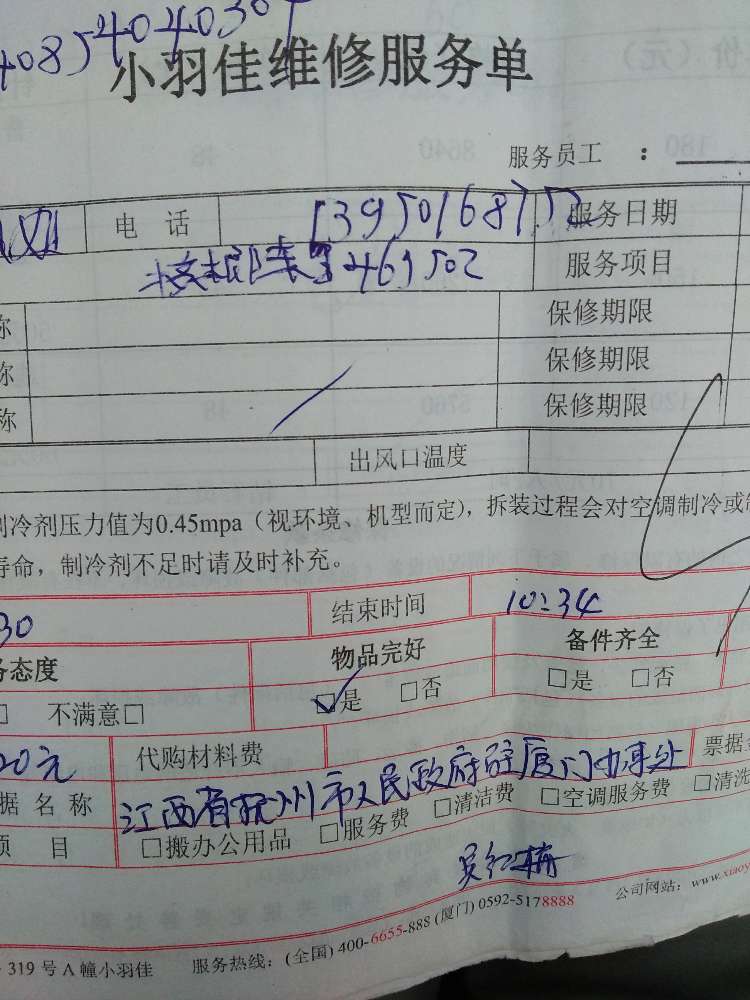 小羽佳维修服务单
服务员工：
电 话 服务日期
469502 服务项目
称 保修期限
称 保修期限
称 保修期限
出风口温度
制冷剂压力值为0.45mpa（视环境、机型而定），拆装过程会对空调制冷或制
寿命，制冷剂不足时请及时补充。
30 结束时间 10:34
务态度 物品完好 备件齐全
□ 不满意□ ☑是 □否 □是 □否
20元 代购材料费 票据
据名称 江西省抚州市人民政府驻厦门办事处
项 目 □搬办公用品 □服务费 □清洁费 □空调服务费 □清洗
吴红梅
319号A幢小羽佳 服务热线：(全国) 400-6655-888 (厦门) 0592-5178888 公司网站：www.xiaoy